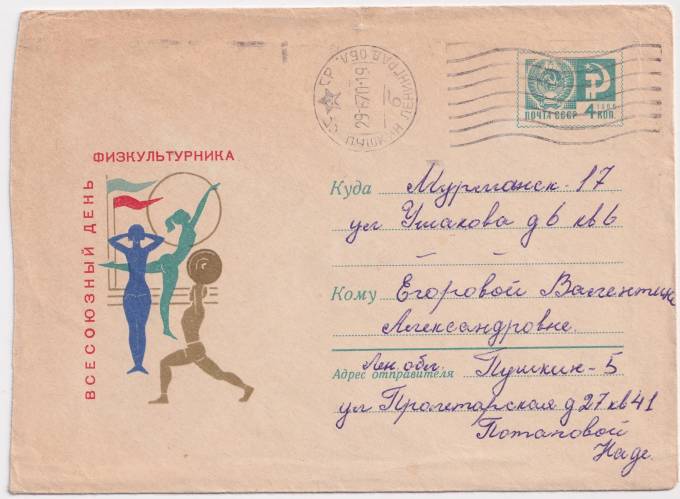 ВСЕСОЮЗНЫЙ ДЕНЬ
ФИЗКУЛЬТУРНИКА
ПУШКИН ЛЕНИНГРАД.ОБЛ.
29-6 70-19
ПОЧТА СССР
1966
4 КОП.
Куда Мурманск-17
ул Ушакова д 6 кв 6
Кому Егоровой Валентине
Александровне.
Адрес отправителя Лен. обл. Пушкин-5
ул Пролетарская д 27 кв 41
Потаповой
Наде.